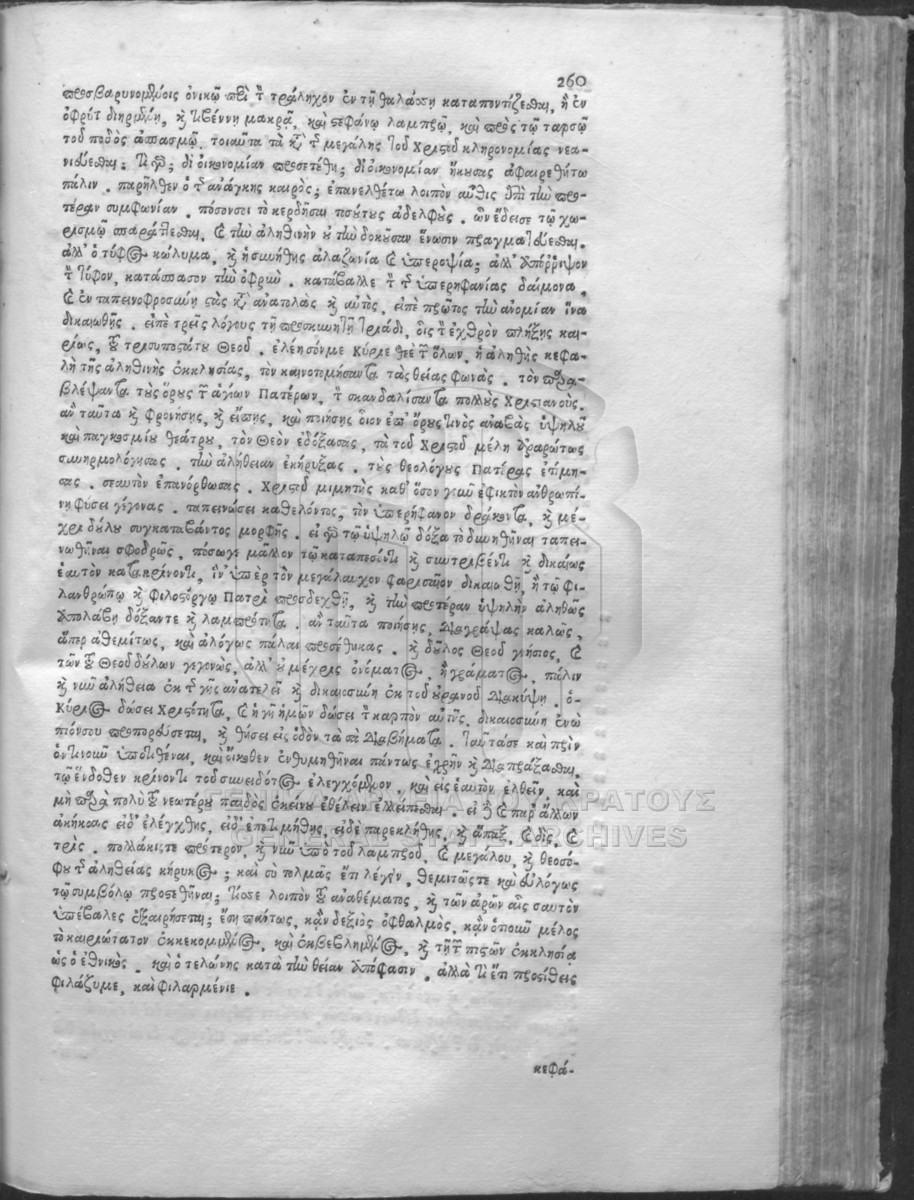 260
προσβαρυνομένοις ὀνικῷ περὶ τὸν τράχηλον ἐν τῇ θαλάσσῃ καταποντίζεσθαι, ἢ ἐν
ὀφρύϊ διηρμένῃ, καὶ γεέννῃ μακρᾷ, καὶ στεφάνῳ λαμπρῷ, καὶ πρὸς τῷ ταρσῷ
τοῦ ποδὸς τοιαῦτα τὰ κατὰ τῆς μεγάλης τοῦ Χριστοῦ κληρονομίας νεα-
νιεύεσθαι. τί γάρ; δι' οἰκονομίαν προσετέθη; δι' οἰκονομίαν ἥκουσας ἀφαιρεθήτω
πάλιν. παρῆλθεν ὁ τῆς ἀνάγκης καιρός; ἐπανελθέτω λοιπὸν αὖθις ἐπὶ τὴν προ-
τέραν συμφωνίαν. πόσον σοι τὸ κερδῆσαι τοσούτους ἀδελφούς. ὧν ἔδεισε τῷ χω-
ρισμῷ καὶ τὴν ἀληθινὴν οὐ τὴν δοκοῦσαν ἕνωσιν πραγματεύεσθαι.
ἀλλ' ὁ τῦφος κώλυμα, καὶ ἡ συνήθης ἀλαζονία καὶ ὑπεροψία; ἀλλ' ἀπόρριψον
τὸν τῦφον, κατάσπασον τὴν ὀφρύν. κατάβαλλε τὸν τῆς ὑπερηφανίας δαίμονα,
καὶ ἐν ταπεινοφροσύνῃ στὰς κατὰ ἀνατολὰς καὶ αὐτός, εἰπὲ πρῶτος τὴν ἀνομίαν ἵνα
δικαιωθῇς. εἰπὲ τρεῖς λόγους τῇ προσκυνητῇ Τριάδι, οἷς τὸν ἐχθρὸν πλήξῃς και-
ρίως, τοῦ τρισυποστάτου Θεοῦ. ἐλέησόν με Κύριε θεὲ τῶν ὅλων, ἡ ἀληθὴς κεφα-
λὴ τῆς ἀληθινῆς ἐκκλησίας, τὸν καινοτομήσαντα τὰς θείας φωνάς. τὸν παρα-
βλέψαντα τοὺς ὅρους τῶν ἁγίων Πατέρων, τὸν σκανδαλίσαντα πολλοὺς Χριστιανούς.
ἂν ταῦτα καὶ φρονήσῃς, καὶ εἴπῃς, καὶ ποιήσῃς οἷον ἐπ' ὄρους τινὸς ἀναβὰς ὑψηλοῦ
καὶ παγκοσμίου θεάτρου, τὸν Θεὸν ἐδόξασας, τὰ τοῦ Χριστοῦ μέλη ἀραρότως
συνηρμολόγησας. τὴν ἀλήθειαν ἐκήρυξας. τοὺς θεολόγους Πατέρας ἐτίμη-
σας. σεαυτὸν ἐπανόρθωσας. Χριστοῦ μιμητὴς καθ' ὅσον γοῦν ἐφικτὸν ἀνθρωπί-
νῃ φύσει γέγονας. ταπεινώσει καθελόντος, τὸν ὑπερήφανον δράκοντα, καὶ μέ-
χρι δούλου συγκαταβάντος μορφῆς. εἰ γὰρ τῷ ὑψηλῷ δόξα τὸ δυνηθῆναι ταπει-
νωθῆναι σφοδρῶς, πόσῳγε μᾶλλον τῷ καταπεσόντι καὶ συντριβέντι καὶ δικαίως
ἑαυτὸν κατακρίνοντι, ἵν' ὑπὲρ τὸν μεγάλαυχον Φαρισαῖον δικαιωθῇ, ἢ τῷ φι-
λανθρώπῳ καὶ φιλοστόργῳ Πατρὶ προσδεχθῇ, καὶ τὴν προτέραν ὑψηλὴν ἀληθῶς
ἀπολάβῃ δόξαν τε καὶ λαμπρότητα. ἂν ταῦτα ποιήσῃς, διαγράψας καλῶς,
ἅπερ ἀθεμίτως, καὶ ἀλόγως πάλαι προσέθηκας. καὶ δοῦλος Θεοῦ γνήσιος, καὶ
τῶν τοῦ Θεοῦ δούλων γεγονώς, ἀλλ' οὐ μέχρις ὀνόματος, ἢ γράματος, πάλιν
καὶ νῦν ἀλήθεια ἐκ τῆς γῆς ἀνατελεῖ καὶ δικαιοσύνη ἐκ τοῦ οὐρανοῦ διακύψῃ. ὁ
Κύριος δώσει Χρηστότητα, καὶ ἡ γῆ ἡμῶν δώσει τὸν καρπὸν αὐτῆς. δικαιοσύνη ἐνώ-
πιόν σου προπορεύσεται, καὶ θήσει εἰς ὁδὸν τὰ σὰ διαβήματα. ταῦτά σε καὶ πρὶν
ὁντινοῦν ὑποτιθέναι, καὶ οἴκοθεν ἐνθυμηθῆναι πάντως ἐχρῆν καὶ διαπράξασθαι,
τῷ ἔνδοθεν κρίνοντι τοῦ συνειδότος ἐλεγχόμενον. καὶ εἰς ἑαυτὸν ἐλθεῖν, καὶ
μὴ παρὰ πολὺ τοῦ νεωτέρου παιδὸς ἐκείνου ἐθέλειν ἐλλείπεσθαι. εἰ δὲ καὶ παρ' ἄλλων
ἀκήκοας εἶθ' ἐλέγχθης, εἶθ' ἐπετιμήθης, εἶθε παρεκλήθης, καὶ ἅπαξ, καὶ δίς, καὶ
τρίς. πολλάκις τε πρότερον, καὶ νῦν ὑπὸ τοῦ λαμπροῦ, καὶ μεγάλου, καὶ θεοσό-
φου τῆς ἀληθείας κήρυκος; καὶ σὺ τολμᾷς ἔτι λέγειν, θεμιτῶς τε καὶ εὐλόγως
τῷ συμβόλῳ προστεθῆναι; τίς σε λοιπὸν τοῦ ἀναθέματος, καὶ τῶν ἀρῶν αἷς σαυτὸν
ὑπέβαλες ἐξαιρήσεται; ἔσῃ πάντως, κἂν δεξιὸς ὀφθαλμός, κἂν ὁποιοῦν μέλος
τὸ καιριώτατον ἐκκεκομμένος, καὶ ἐκβεβλημένος, καὶ τῇ τῶν πιστῶν ἐκκλησίᾳ
ὡς ὁ ἐθνικός. καὶ ὁ τελώνης κατὰ τὴν θείαν ἀπόφασιν. ἀλλὰ τί ἔτι προστίθεις
φιλάζυμε, καὶ φιλαρμένιε.
κεφά-
ΓΕΝΙΚΑ ΑΡΧΕΙΑ ΤΟΥ ΚΡΑΤΟΥΣ
GENERAL STATE ARCHIVES